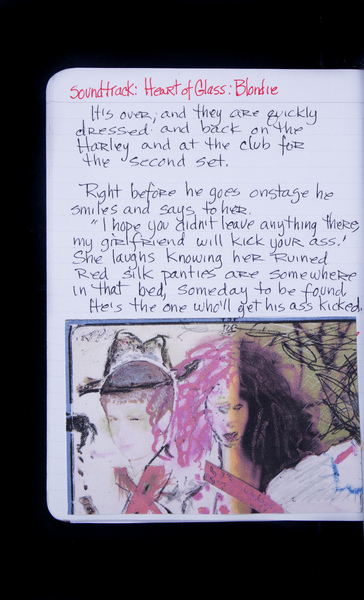 Soundtrack: Heart of Glass: Blondie
It's over, and they are quickly
dressed and back on the
Harley and at the club for
the second set.
Right before he goes onstage he
smiles and says to her.
"I hope you didn't leave anything there,
my girlfriend will kick your ass.'
She laughs knowing her ruined
Red silk panties are somewhere
in that bed, someday to be found.
He's the one who'll get his ass kicked.